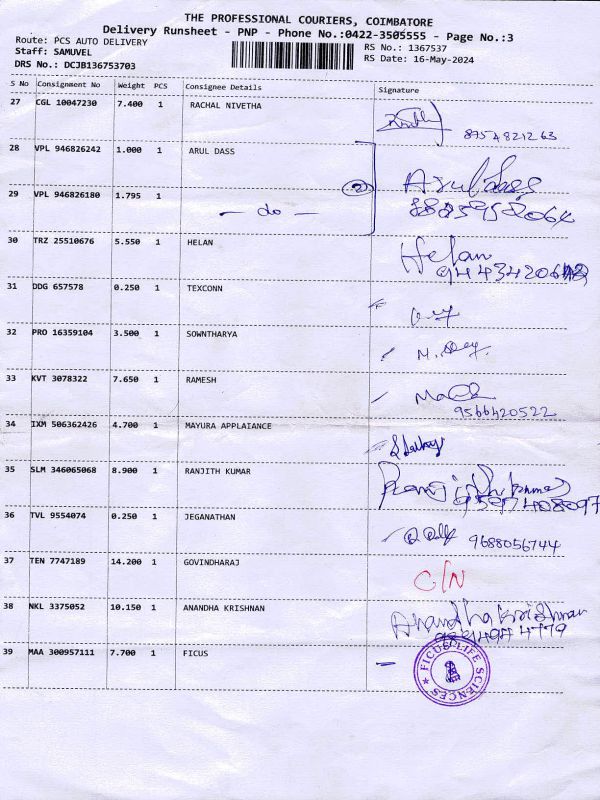 THE PROFESSIONAL COURIERS, COIMBATORE
Delivery Runsheet - PNP - Phone No.:0422-3505555 - Page No.:3
Route: PCS AUTO DELIVERY
RS No.: 1367537
Staff: SAMUVEL
RS Date: 16-May-2024
DRS No.: DCJB136753703
S No Consignment No Weight PCS Consignee Details Signature
27 CGL 10047230 7.400 1 RACHAL NIVETHA
8754821263
28 VPL 946826242 1.000 1 ARUL DASS Aruldass
29 VPL 946826180 1.795 1 - do - 2
30 TRZ 25510676 5.550 1 HELAN Helan
31 DDG 657578 0.250 1 TEXCONN
32 PRO 16359104 3.500 1 SOWNTHARYA
33 KVT 3078322 7.650 1 RAMESH
9566420522
34 IXM 506362426 4.700 1 MAYURA APPLAIANCE
35 SLM 346065068 8.900 1 RANJITH KUMAR Ranjith kumar
9597408097
36 TVL 9554074 0.250 1 JEGANATHAN 9688056744
37 TEN 7747189 14.200 1 GOVINDHARAJ C/N
38 NKL 3375052 10.150 1 ANANDHA KRISHNAN Anandhakrishnan
39 MAA 300957111 7.700 1 FICUS
FICUS LIFE SCIENCES